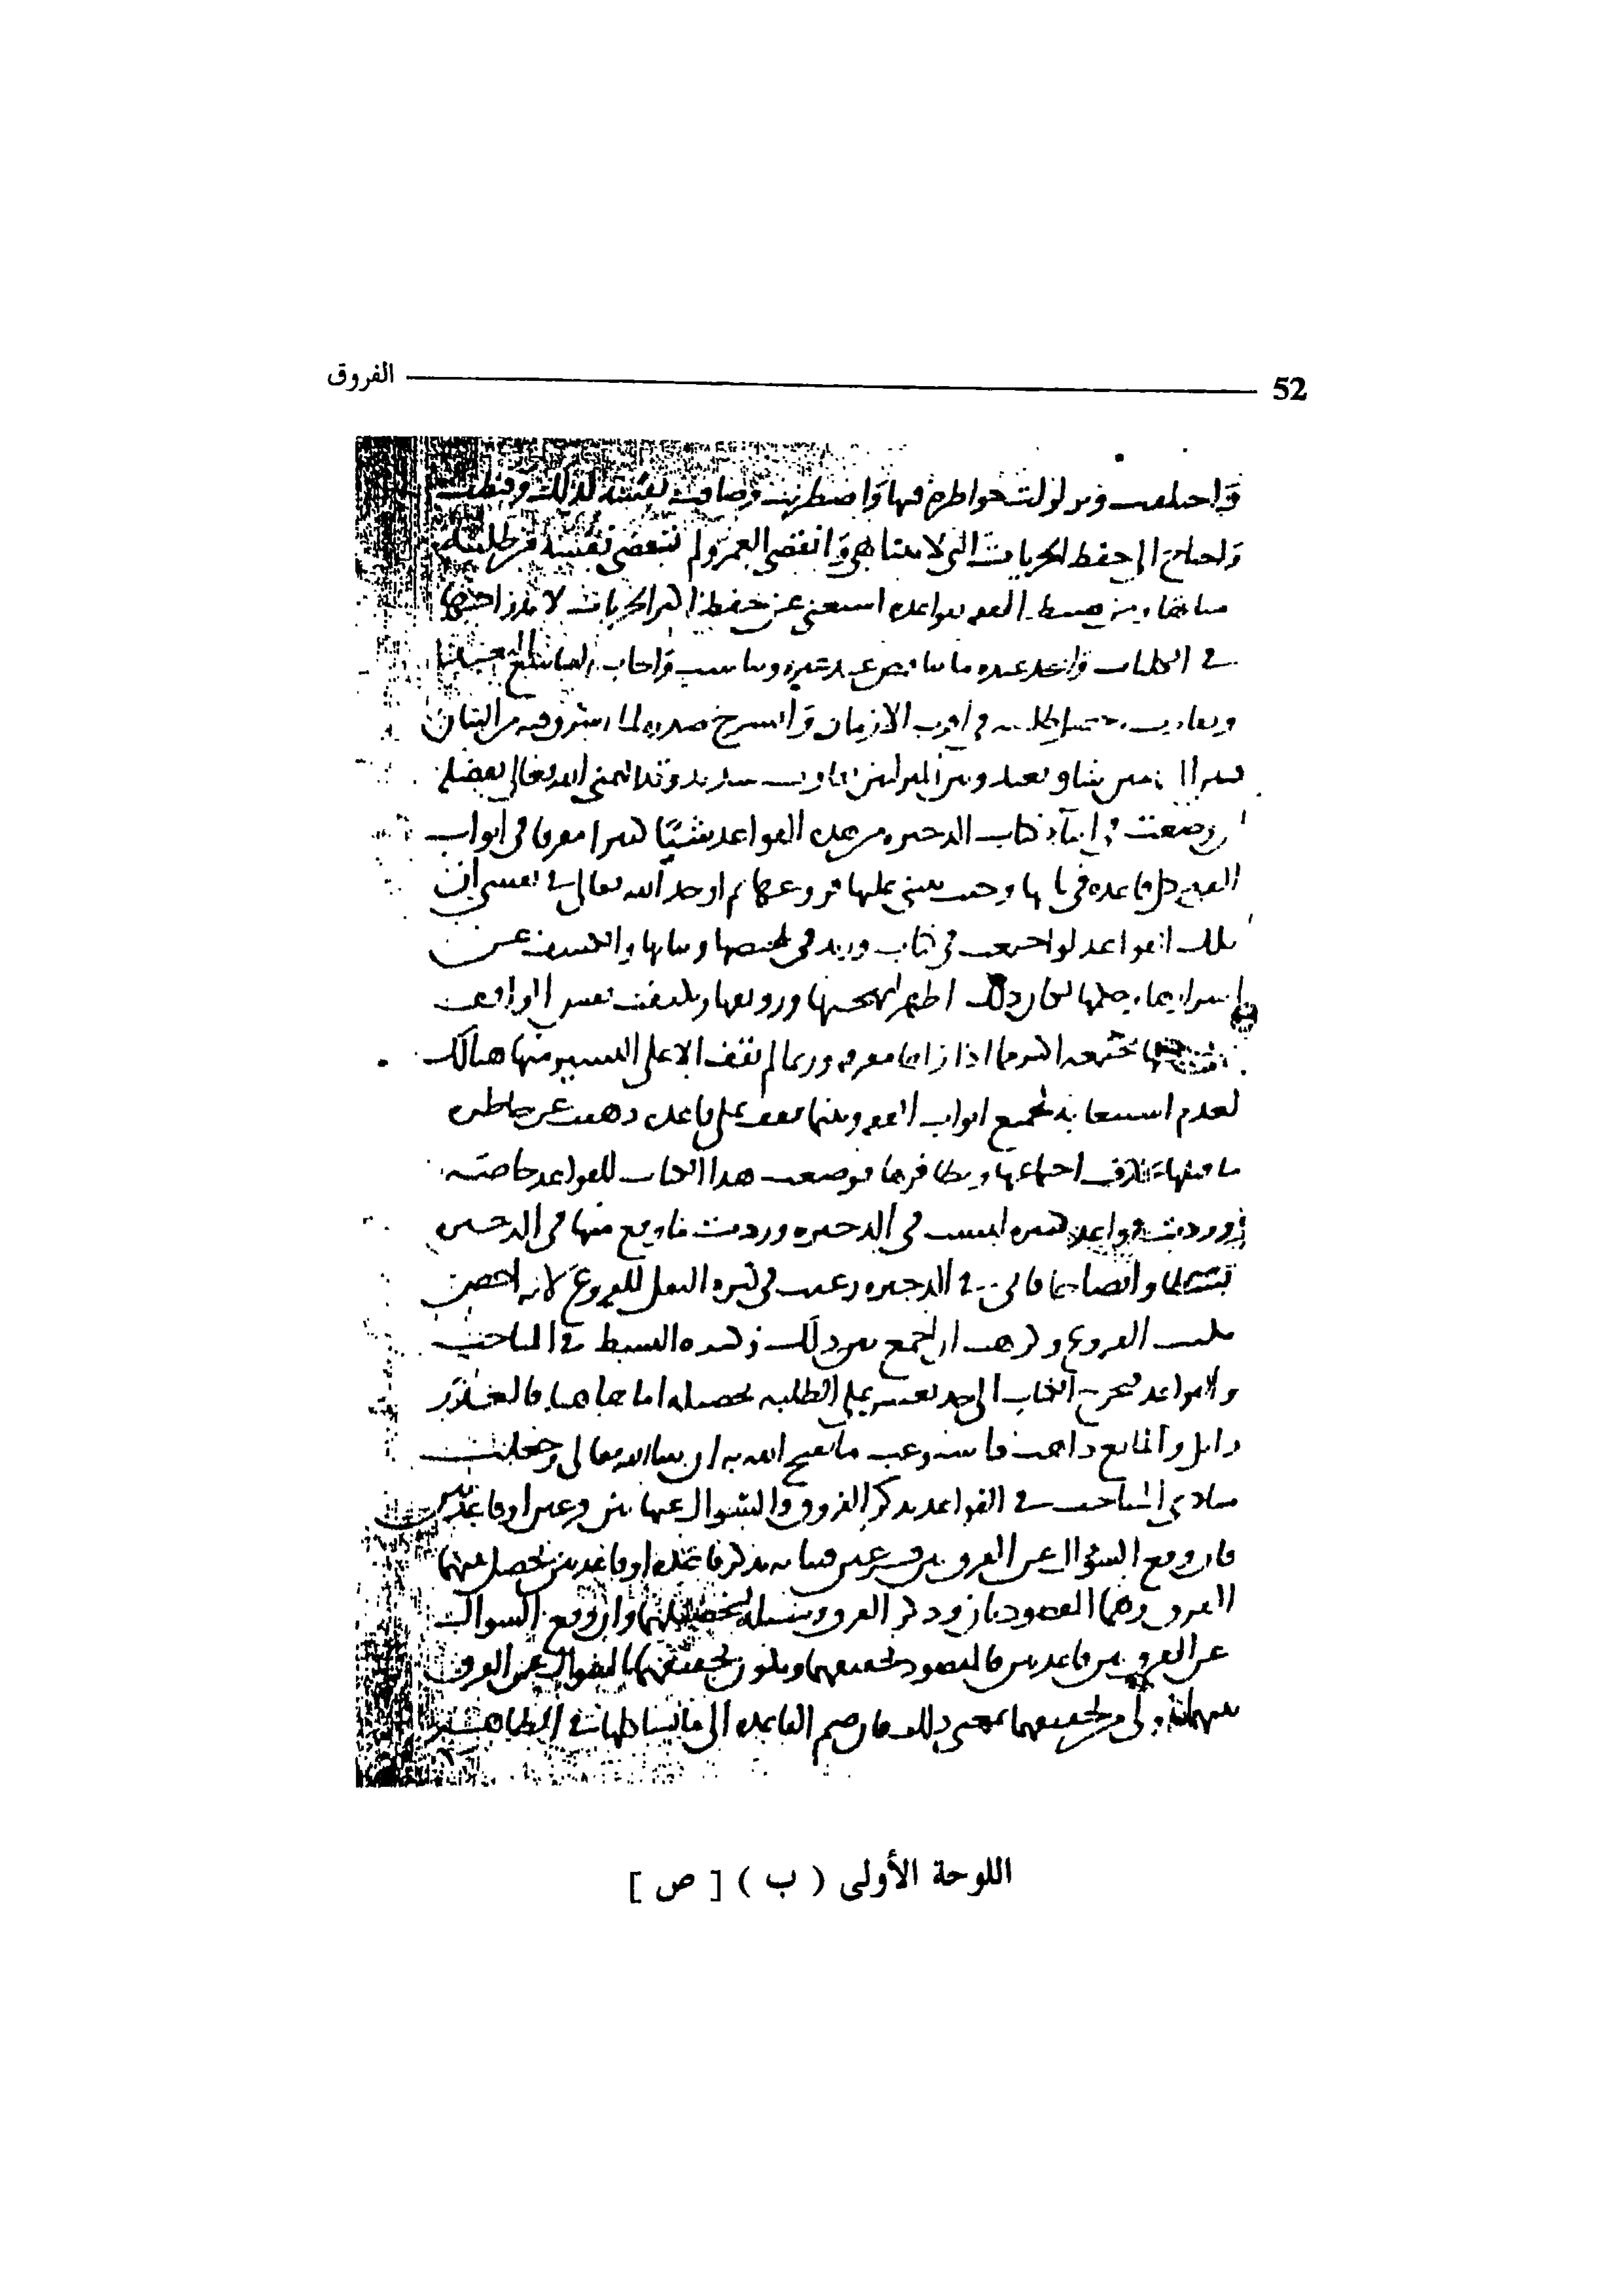 الفروق 52
واختلفت وتزلزلت خواطره فيها واضطربت وضاقت نفسه لذلك وقنطت
واحتاج الى حفظ الجزيات التى لا تتناهى وانقضى العمر ولم تقض نفسه من طلب
مناها ومن ضبط الفقه بقواعده استغنى عن حفظ اكثر الجزيات لاندراجها
فى الكليات واتحد عنده ما تناقض عند غيره وتناسب واجاب الشاسع البعيد
وتقارب وحصل طلبته فى اقرب الازمان وانشرح صدره لما اشرق فيه من البيان
فبين شاو بعيد وبين المنزلتين تفاوت شديد وقد الهمنى الله تعالى بفضله
ان وضعت فى اثناء كتاب الدخيره من هده القواعد شيئا كثيرا مفرقا فى ابواب
الفقه كل قاعده فى بابها وحيث تبنى عليها فروعها ثم اوجد الله تعالى فى نفسى ان
تلك القواعد لو اجتمعت فى كتاب وزيد فى تلخيصها وبيانها والكشف عن
اسرارها وحكمها لكان دلك اظهر لبهجتها ورونقها وتكيفت نفس الواقف
مجتمعه اكثر مما اذا راها مفرقه وربما لم يقف الا على اليسير منها هنالك
لعدم استيعابه لجميع ابواب الفقه واينما يقف على قاعده دهب عن خاطره
ما قبلها بخلاف اجتماعها وتظافرها فوضعت هدا الكتاب للقواعد خاصة
وزدت قواعد كثيره ليست فى الدخيره وزدت ما وقع منها فى الدخيره
بسطا وايضاحا فانى فى الدخيره رغبت فى كثره النقل للفروع لانه اخص
بكتب الفروع وكرهت ان اجمع بين دلك وكثره البسط فى المباحث
والقواعد فيخرج الكتاب الى حد يعسر على الطلبه تحصيله اما هاهنا فالعذر
زايل والمانع داهب فاستوعب ما يفتح الله به ان شا الله تعالى وجعلت
مبادى المباحث فى القواعد بدكر الفروق والسوال عنها بين فرعين او قاعدتين
فان وقع السؤال عن الفرق بين فرعين فبيانه بدكر قاعده او قاعدتين يحصل بهما
الفرق وهما المقصودتان ودكر الفرق وسيله لتحصيلهما وان وقع السوال
عن الفرق بين قاعدتين فالمقصود تحقيقهما ويكون تحقيقهما بالسوال عن الفرق
بينهما اولى من تحقيقهما بغير دلك فان ضم القاعده الى ما يشاكلها فى الظاهر
اللوحة الأولى ( ب ) [ ص ]